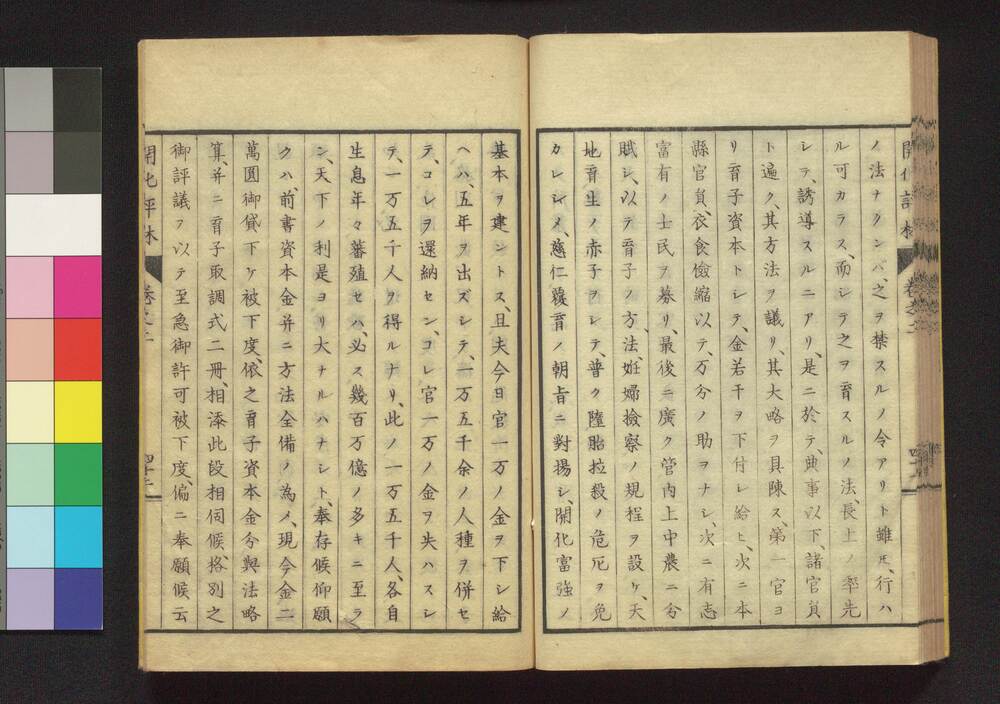 ノ法ナクンバ、之ヲ禁スルノ令アリト雖𪜈、行ハ
ル可カラス、而シテ之ヲ育スルノ法、長上ノ率先
シテ、誘導スルニアリ、是ニ於テ、典事以下、諸官員
ト遍ク、其方法ヲ議リ、其大略ヲ具陳ス、第一官ヨ
リ育子資本トシテ、金若干ヲ下付レ給ヒ、次ニ本
縣官員、衣食儉縮以テ、万分ノ助ヲナシ、次ニ有志
富有ノ士民ヲ募リ、最後ニ廣ク管内上中農ニ分
賦シ、以テ育子ノ方、法妊婦撿察ノ規程ヲ設ケ、天
地育生ノ赤子ヲシテ、普ク墮胎拉殺ノ危厄ヲ免
カレシメ、慈仁覆育ノ朝旨ニ對揚シ、開化富強ノ
基本ヲ建ントス、且夫今日官一万ノ金ヲ下シ給
ヘハ、五年ヲ出ズシテ、一万五千余ノ人種ヲ併セ
テ、コレヲ還納セン、コレ官一万ノ金ヲ失ハスシ
テ、一万五千人ヲ得ルナリ、此ノ一万五千人、各自
生息年々蕃殖セハ、必ス幾百万億ノ多キニ至ラ
ン、天下ノ利是ヨリ大ナルハナシト奉存候仰願
クハ、前書資本金并ニ方法全備ノ為メ、現今金二
萬圓御貸下ケ被下度、依之育子資本金分與法略
算、并ニ育子取調式二冊、相添此段相伺候、格別之
御評議ヲ以テ至急御許可被下度、偏ニ奉願候云
開化評林
卷之二